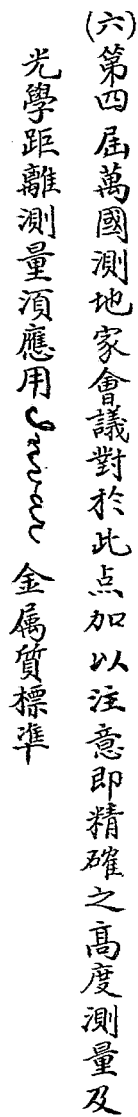 (六)第四屆萬國測地家會議對於此点加以注意即精確之高度測量及
光學距離測量須應用 金属質標準